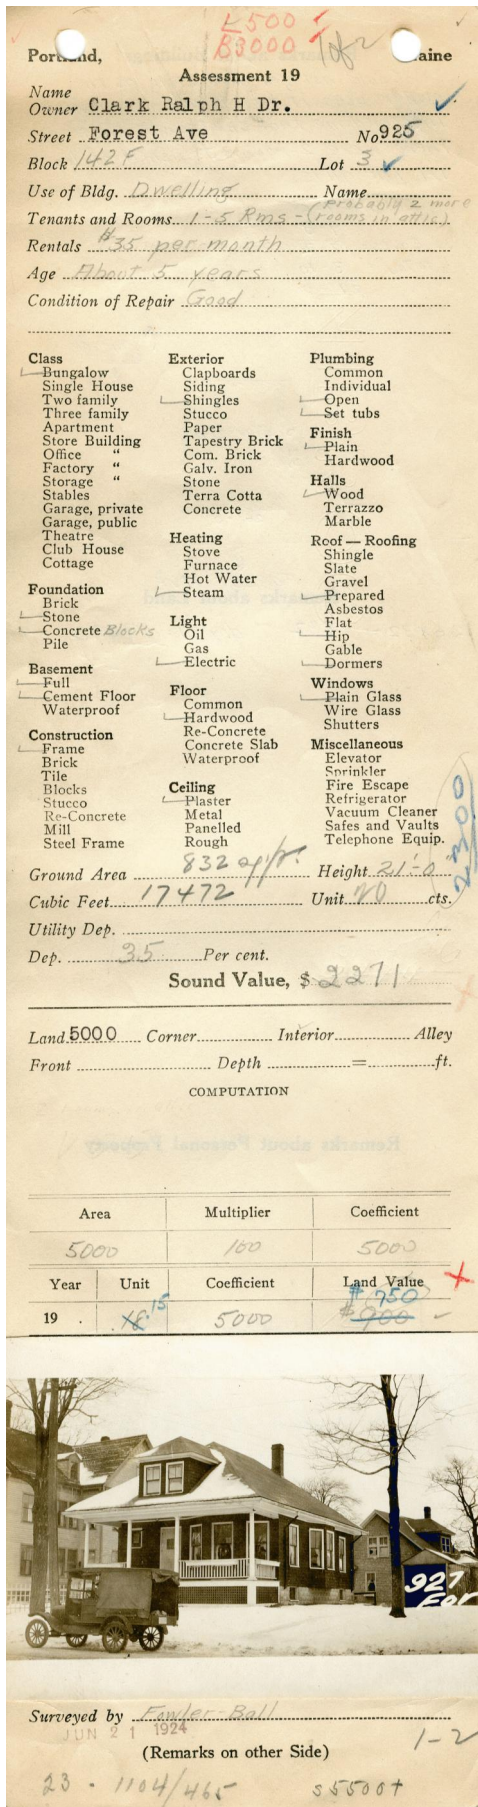 L500
B3000
1 of 2
Portland, Maine
Assessment 19
Name
Owner Clark Ralph H Dr.
Street Forest Ave No 925
Block 142 F Lot 3
Use of Bldg. Dwelling Name
Tenants and Rooms 1-5 Rms - (Probably 2 more rooms in attic)
Rentals $35 per month
Age About 5 years
Condition of Repair Good
Class
Bungalow
Single House
Two family
Three family
Apartment
Store Building
Office "
Factory "
Storage "
Stables
Garage, private
Garage, public
Theatre
Club House
Cottage
Foundation
Brick
Stone
Concrete Blocks
Pile
Basement
Full
Cement Floor
Waterproof
Construction
Frame
Brick
Tile
Blocks
Stucco
Re-Concrete
Mill
Steel Frame
Exterior
Clapboards
Siding
Shingles
Stucco
Paper
Tapestry Brick
Com. Brick
Galv. Iron
Stone
Terra Cotta
Concrete
Heating
Stove
Furnace
Hot Water
Steam
Light
Oil
Gas
Electric
Floor
Common
Hardwood
Re-Concrete
Concrete Slab
Waterproof
Ceiling
Plaster
Metal
Panelled
Rough
Plumbing
Common
Individual
Open
Set tubs
Finish
Plain
Hardwood
Halls
Wood
Terrazzo
Marble
Roof — Roofing
Shingle
Slate
Gravel
Prepared
Asbestos
Flat
Hip
Gable
Dormers
Windows
Plain Glass
Wire Glass
Shutters
Miscellaneous
Elevator
Sprinkler
Fire Escape
Refrigerator
Vacuum Cleaner
Safes and Vaults
Telephone Equip.
Ground Area 832 Height 21'-0"
Cubic Feet 17472 Unit 20 cts.
Utility Dep.
Dep. 35 Per cent.
Sound Value, $ 2271
Land 5000 Corner Interior Alley
Front Depth = ft.
COMPUTATION
Area Multiplier Coefficient
5000 100 5000
Year Unit Coefficient Land Value
$ 750
19 . 18 15 5000 $ 900
927
For
Surveyed by Fowler-Ball
JUN 21 1924
1-2
(Remarks on other Side)
23 - 1104/465 s5500+